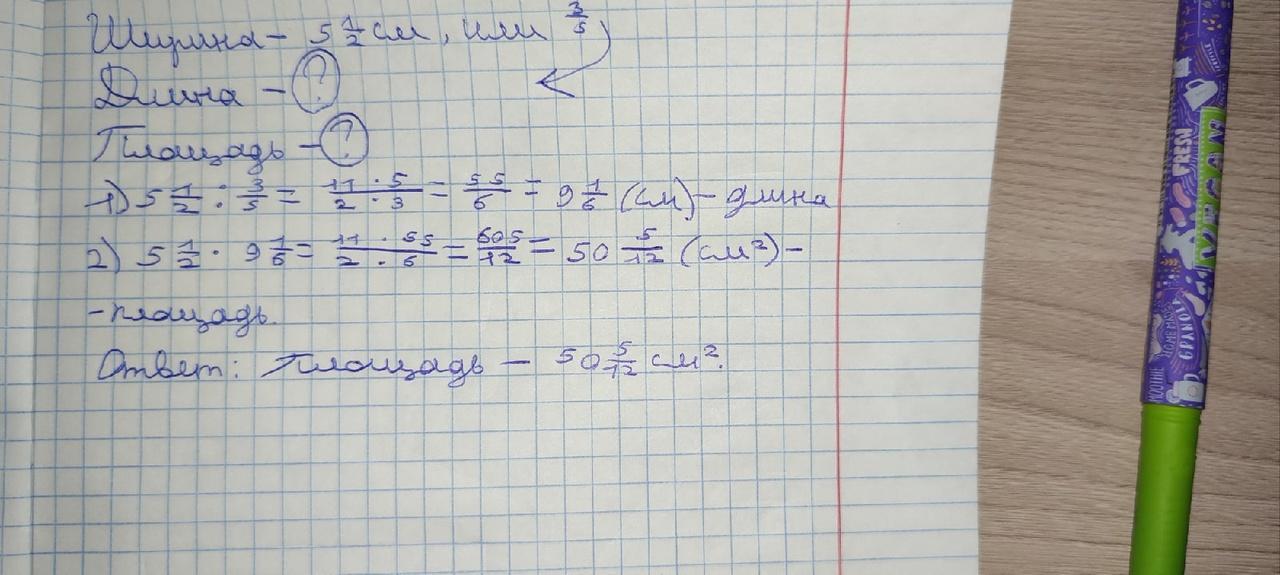 Ширина - 5 1/2 см, или 3/5
Длина - ?
Площадь - ?
1) 5 1/2 : 3/5 = 11 · 5 / 2 · 3 = 55/6 = 9 1/6 (см) - длина
2) 5 1/2 · 9 1/6 = 11 · 55 / 2 · 6 = 605/12 = 50 5/12 (см²) -
- площадь.
Ответ: Площадь - 50 5/12 см².
FRESH
VEGAN
HOMEMADE
GRANOLA